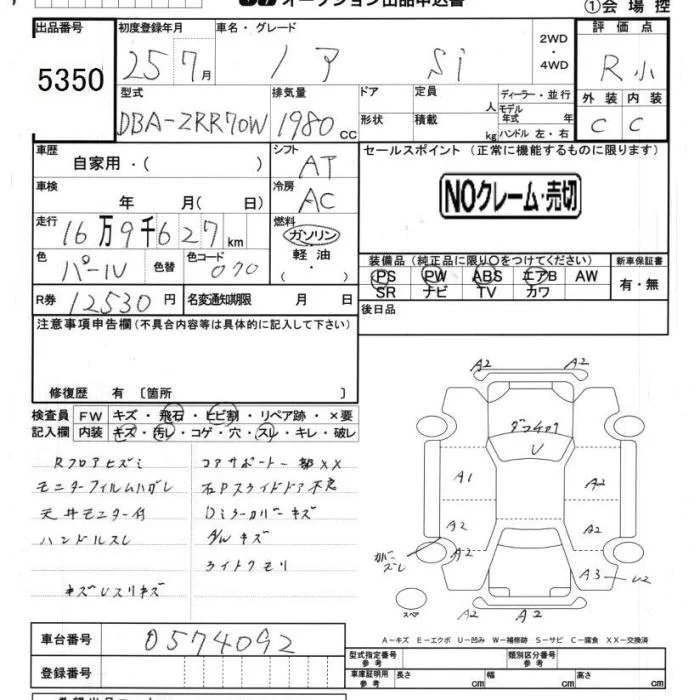 オークション出品申込書
①会場控
出品番号 初度登録年月 車名・グレード 2WD ・ 4WD 評価点
5350 25 7月 ノア Si R小
型式 排気量 ドア 定員 人 ディーラー・並行 外装 内装
DBA-ZRR70W 1980 cc 形状 積載 kg モデル年式 年 ハンドル 左・右 C C
車歴 シフト セールスポイント (正常に機能するものに限ります)
自家用・( ) AT
車検 冷房 NOクレーム・売切
年 月( 日) AC
走行 燃料
16万9千627km ガソリン
色 色替 色コード 軽油 装備品 (純正品に限り○をつけてください) 新車保証書
パール 070 ( ・ ) PS PW ABS エアB AW 有・無
R券 12530円 名変通知期限 月 日 SR ナビ TV カワ
注意事項申告欄(不具合内容等は具体的に記入して下さい) 後日品
修復歴 有 〔箇所 〕
検査員 FW キズ・飛石・ヒビ割・リペア跡・×要
記入欄 内装 キズ・汚レ・コゲ・穴・スレ・キレ・破レ
Rフロアヒズミ コアサポート一部XX
モニターフィルムハガレ 右Pスライドドア不良
天井モニター付 Dミラーカバーキズ
ハンドルスレ AWキズ
ライトクモリ
キズUスリキズ
A2 A2
U
A1 A2
A2 A2
カバーズレ A2 A3 U2
A2 A2
スペア
A-キズ E-エクボ U-凹み W-補修跡 S-サビ C-腐食 XX-交換済
車台番号 0574092 型式指定番号 参考 類別区分番号 参考
登録番号 車庫証明用 参考 長さ cm 幅 cm 高さ cm